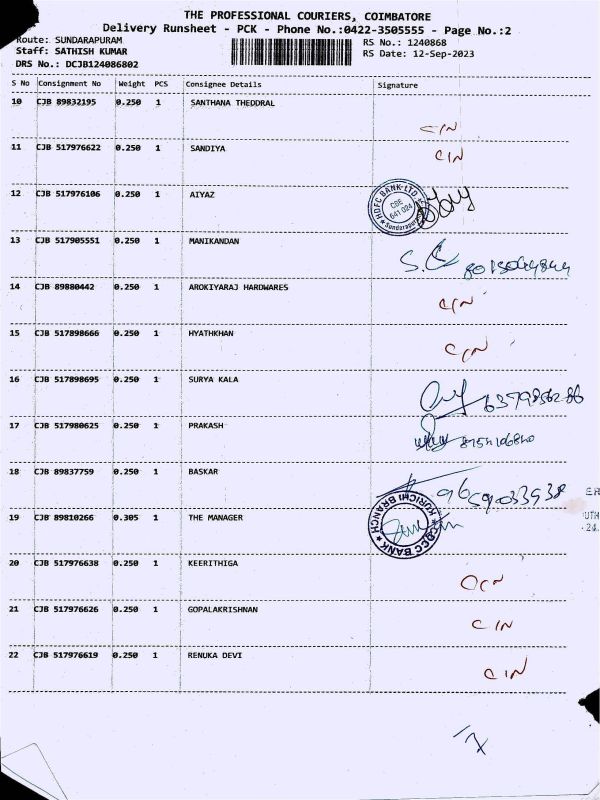 THE PROFESSIONAL COURIERS, COIMBATORE
Delivery Runsheet - PCK - Phone No.:0422-3505555 - Page No.:2
Route: SUNDARAPURAM
RS No.: 1240868
Staff: SATHISH KUMAR
RS Date: 12-Sep-2023
DRS No.: DCJB124086802
S No Consignment No Weight PCS Consignee Details Signature
10 CJB 89832195 0.250 1 SANTHANA THEDDRAL
CIN
11 CJB 517976622 0.250 1 SANDIYA
CIN
12 CJB 517976106 0.250 1 AIYAZ
HDFC BANK LTD.
CBE
641 024
Sundarapuram
13 CJB 517905551 0.250 1 MANIKANDAN
14 CJB 89880442 0.250 1 AROKIYARAJ HARDWARES
CIN
15 CJB 517898666 0.250 1 HYATHKHAN
CIN
16 CJB 517898695 0.250 1 SURYA KALA
17 CJB 517980625 0.250 1 PRAKASH
18 CJB 89837759 0.250 1 BASKAR
19 CJB 89810266 0.305 1 THE MANAGER
KURICHI BRANCH
CDCC BANK
20 CJB 517976638 0.250 1 KEERITHIGA
21 CJB 517976626 0.250 1 GOPALAKRISHNAN
CIN
22 CJB 517976619 0.250 1 RENUKA DEVI
CIN